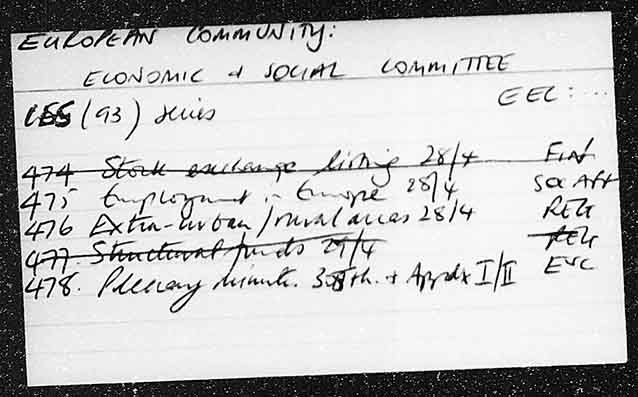 EUROPEAN COMMUNITY:
ECONOMIC & SOCIAL COMMITTEE
EEC: ...
CES (93) series
474 Stock exchange listing 28/4 FIN
475 Employment in Europe 28/4 SOC AFF
476 Extra-urban / rural areas 28/4 REG
477 Structural funds 29/4 REG
478. Plenary minute. th. + Appdx I/II